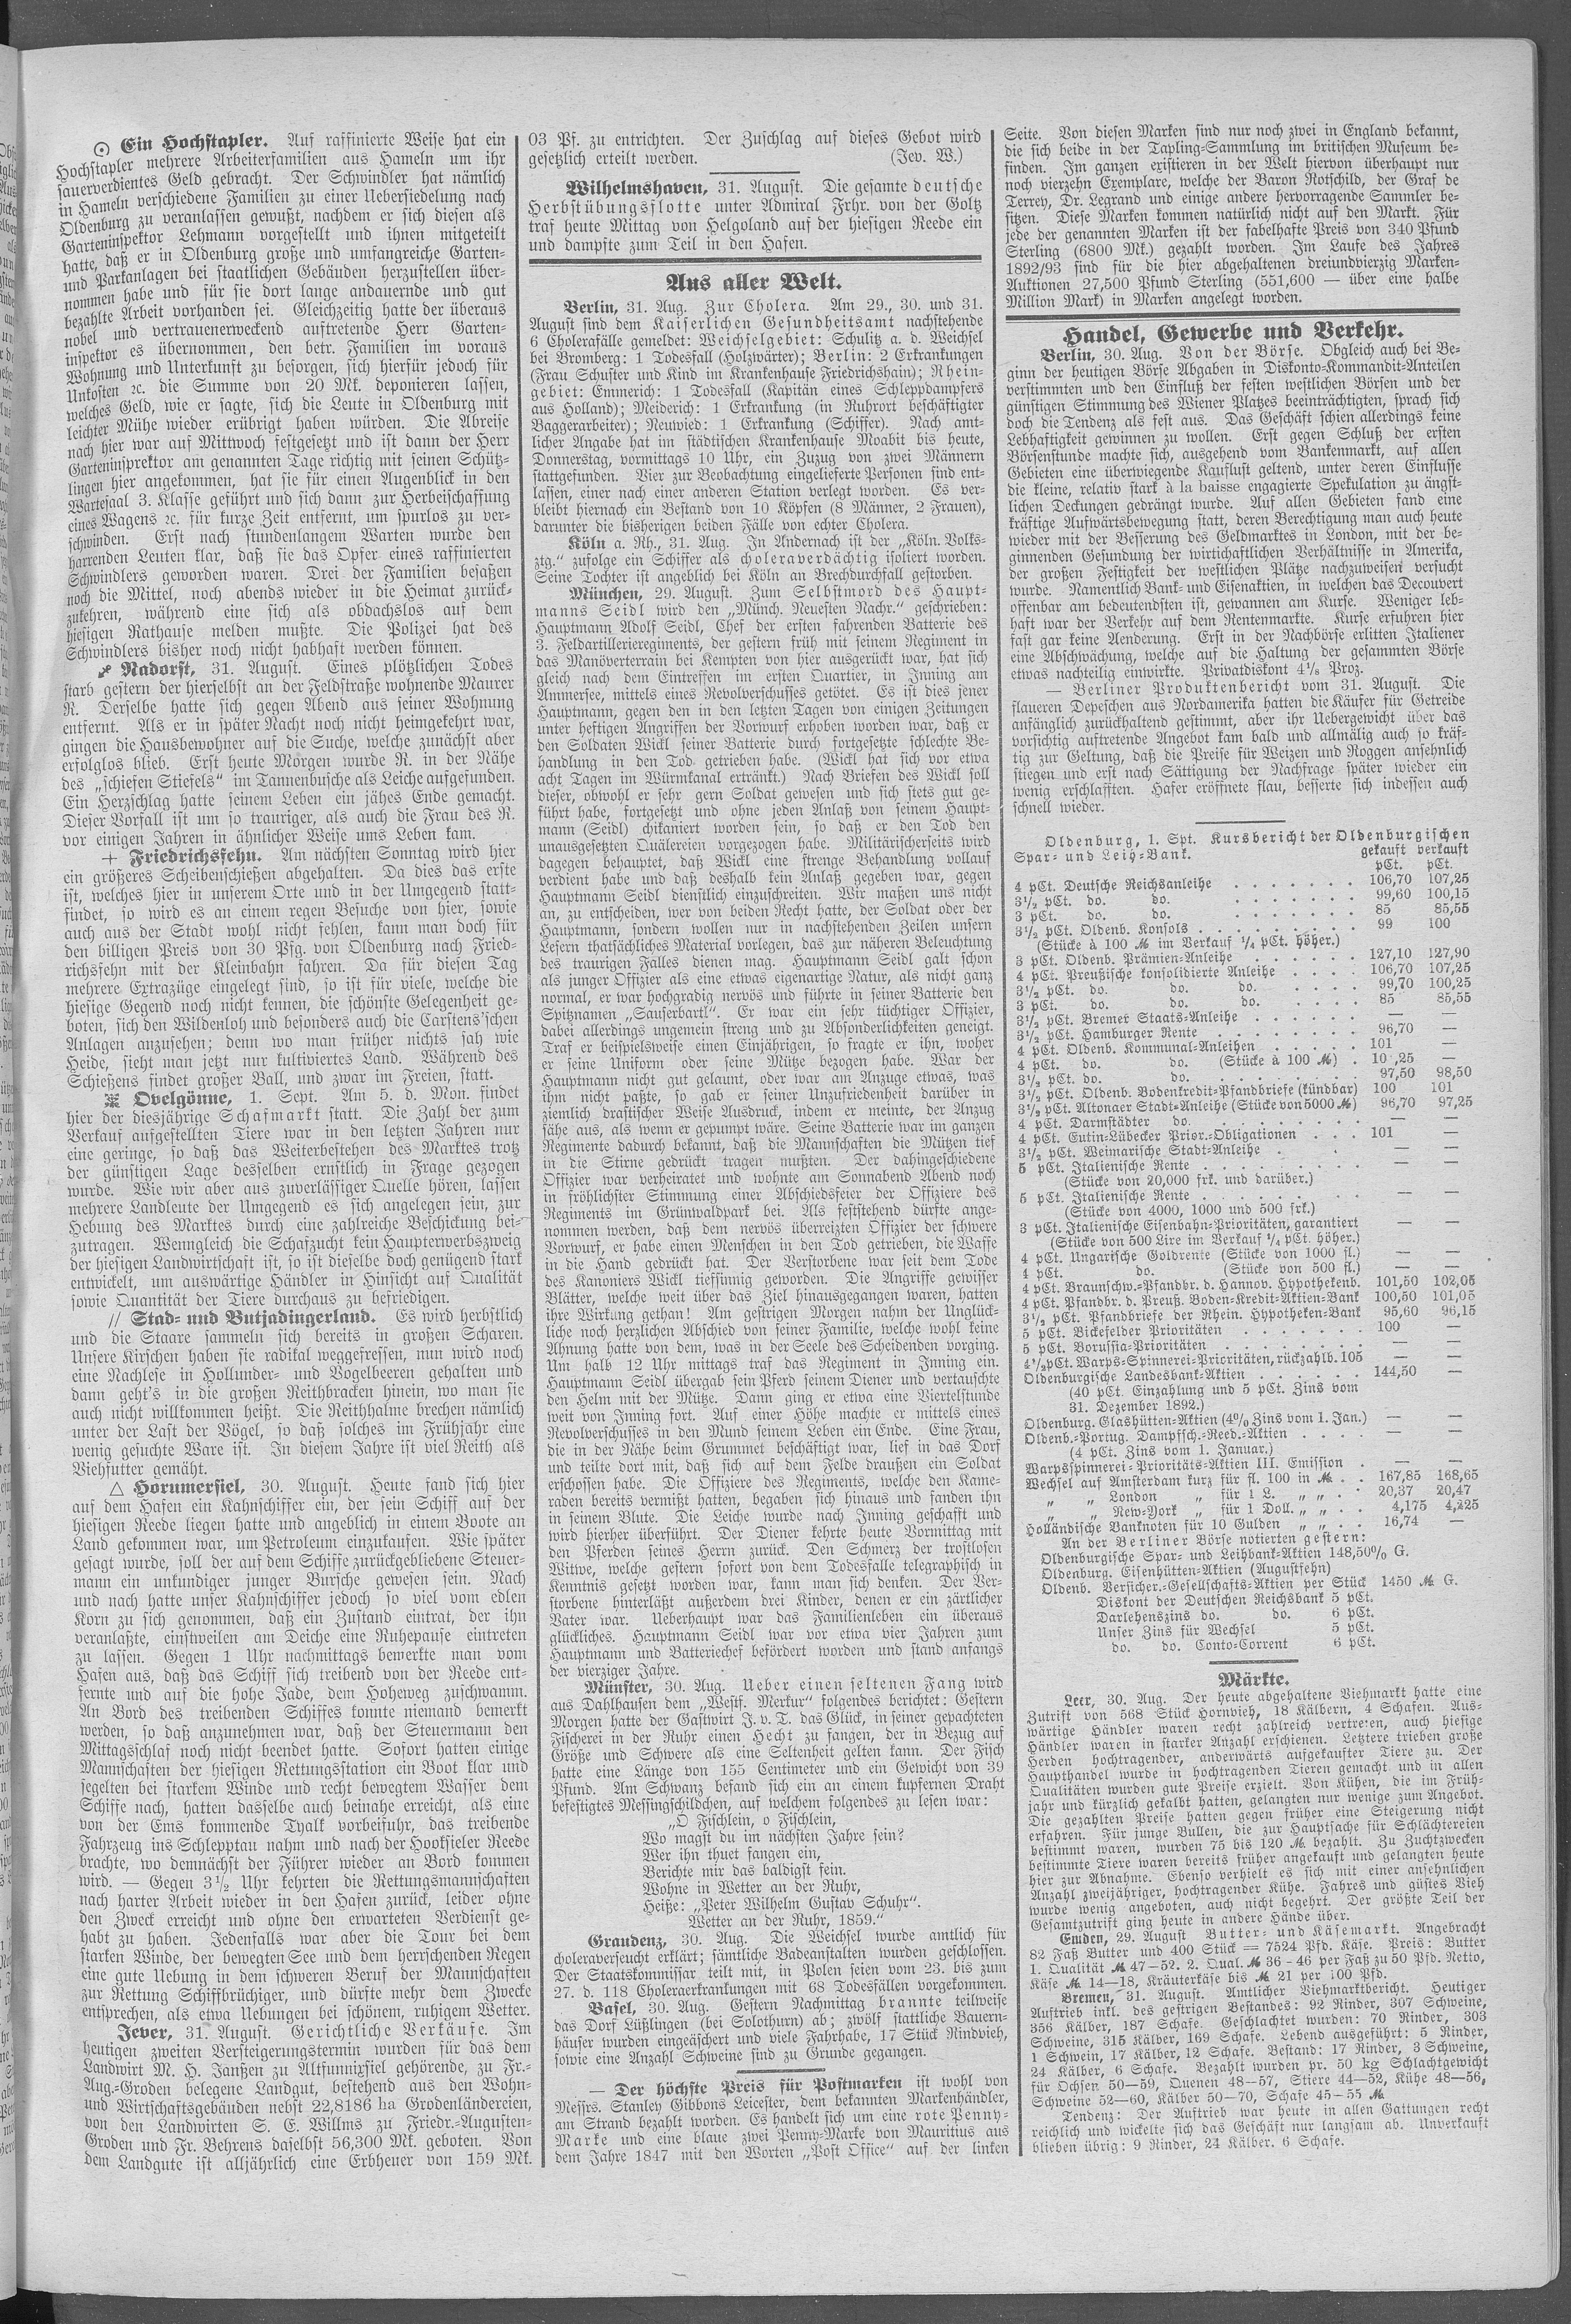 ⨀ Ein Hochstapler. Auf raffinierte Weise hat ein
Hochstapler mehrere Arbeiterfamilien aus Hameln um ihr
sauerverdientes Geld gebracht. Der Schwindler hat nämlich
in Hameln verschiedene Familien zu einer Uebersiedelung nach
Oldenburg zu veranlassen gewußt, nachdem er sich diesen als
Garteninspektor Lehmann vorgestellt und ihnen mitgeteilt
hatte, daß er in Oldenburg große und umfangreiche Garten-
und Parkanlagen bei staatlichen Gebäuden herzustellen über-
nommen habe und für sie dort lange andauernde und gut
bezahlte Arbeit vorhanden sei. Gleichzeitig hatte der überaus
nobel und vertrauenerweckend auftretende Herr Garten-
inspektor es übernommen, den betr. Familien im voraus
Wohnung und Unterkunft zu besorgen, sich hierfür jedoch für
Unkosten ꝛc. die Summe von 20 Mk. deponieren lassen,
welches Geld, wie er sagte, sich die Leute in Oldenburg mit
leichter Mühe wieder erübrigt haben würden. Die Abreise
nach hier war auf Mittwoch festgesetzt und ist dann der Herr
Garteninsprektor am genannten Tage richtig mit seinen Schütz-
lingen hier angekommen, hat sie für einen Augenblick in den
Wartesaal 3. Klasse geführt und sich dann zur Herbeischaffung
eines Wagens ꝛc. für kurze Zeit entfernt, um spurlos zu ver-
schwinden. Erst nach stundenlangem Warten wurde den
harrenden Leuten klar, daß sie das Opfer eines raffinierten
Schwindlers geworden waren. Drei der Familien besaßen
noch die Mittel, noch abends wieder in die Heimat zurück-
zukehren, während eine sich als obdachslos auf dem
hiesigen Rathause melden mußte. Die Polizei hat des
Schwindlers bisher noch nicht habhaft werden können.
Nadorst, 31. August. Eines plötzlichen Todes
starb gestern der hierselbst an der Feldstraße wohnende Maurer
R. Derselbe hatte sich gegen Abend aus seiner Wohnung
entfernt. Als er in später Nacht noch nicht heimgekehrt war,
gingen die Hausbewohner auf die Suche, welche zunächst aber
erfolglos blieb. Erst heute Morgen wurde R. in der Nähe
des „schiefen Stiefels“ im Tannenbusche als Leiche aufgefunden.
Ein Herzschlag hatte seinem Leben ein jähes Ende gemacht.
Dieser Vorfall ist um so trauriger, als auch die Frau des R.
vor einigen Jahren in ähnlicher Weise ums Leben kam.
+ Friedrichsfehn. Am nächsten Sonntag wird hier
ein größeres Scheibenschießen abgehalten. Da dies das erste
ist, welches hier in unserem Orte und in der Umgegend statt-
findet, so wird es an einem regen Besuche von hier, sowie
auch aus der Stadt wohl nicht fehlen, kann man doch für
den billigen Preis von 30 Pfg. von Oldenburg nach Fried-
richsfehn mit der Kleinbahn fahren. Da für diesen Tag
mehrere Extrazüge eingelegt sind, so ist für viele, welche die
hiesige Gegend noch nicht kennen, die schönste Gelegenheit ge-
boten, sich den Wildenloh und besonders auch die Carstens'schen
Anlagen anzusehen; denn wo man früher nichts sah wie
Heide, sieht man jetzt nur kultiviertes Land. Während des
Schießens findet großer Ball, und zwar im Freien, statt.
Ovelgönne, 1. Sept. Am 5. d. Mon. findet
hier der diesjährige Schafmarkt statt. Die Zahl der zum
Verkauf aufgestellten Tiere war in den letzten Jahren nur
eine geringe, so daß das Weiterbestehen des Marktes trotz
der günstigen Lage desselben ernstlich in Frage gezogen
wurde. Wie wir aber aus zuverlässiger Quelle hören, lassen
mehrere Landleute der Umgegend es sich angelegen sein, zur
Hebung des Marktes durch eine zahlreiche Beschickung bei-
zutragen. Wenngleich die Schafzucht kein Haupterwerbszweig
der hiesigen Landwirtschaft ist, so ist dieselbe doch genügend stark
entwickelt, um auswärtige Händler in Hinsicht auf Qualität
sowie Quantität der Tiere durchaus zu befriedigen.
// Stad- und Butjadingerland. Es wird herbstlich
und die Staare sammeln sich bereits in großen Scharen.
Unsere Kirschen haben sie radikal weggefressen, nun wird noch
eine Nachlese in Hollunder- und Vogelbeeren gehalten und
dann geht's in die großen Reithbracken hinein, wo man sie
auch nicht willkommen heißt. Die Reithhalme brechen nämlich
unter der Last der Vögel, so daß solches im Frühjahr eine
wenig gesuchte Ware ist. In diesem Jahre ist viel Reith als
Viehfutter gemäht.
△ Horumersiel, 30. August. Heute fand sich hier
auf dem Hafen ein Kahnschiffer ein, der sein Schiff auf der
hiesigen Reede liegen hatte und angeblich in einem Boote an
Land gekommen war, um Petroleum einzukaufen. Wie später
gesagt wurde, soll der auf dem Schiffe zurückgebliebene Steuer-
mann ein unkundiger junger Bursche gewesen sein. Nach
und nach hatte unser Kahnschiffer jedoch so viel vom edlen
Korn zu sich genommen, daß ein Zustand eintrat, der ihn
veranlaßte, einstweilen am Deiche eine Ruhepause eintreten
zu lassen. Gegen 1 Uhr nachmittags bemerkte man vom
Hafen aus, daß das Schiff sich treibend von der Reede ent-
fernte und auf die hohe Jade, dem Hoheweg zuschwamm.
An Bord des treibenden Schiffes konnte niemand bemerkt
werden, so daß anzunehmen war, daß der Steuermann den
Mittagsschlaf noch nicht beendet hatte. Sofort hatten einige
Mannschaften der hiesigen Rettungsstation ein Boot klar und
segelten bei starkem Winde und recht bewegtem Wasser dem
Schiffe nach, hatten dasselbe auch beinahe erreicht, als eine
von der Ems kommende Tyalk vorbeifuhr, das treibende
Fahrzeug ins Schlepptau nahm und nach der Hooksieler Reede
brachte, wo demnächst der Führer wieder an Bord kommen
wird. — Gegen 3½ Uhr kehrten die Rettungsmannschaften
nach harter Arbeit wieder in den Hafen zurück, leider ohne
den Zweck erreicht und ohne den erwarteten Verdienst ge-
habt zu haben. Jedenfalls war aber die Tour bei dem
starken Winde, der bewegten See und dem herrschenden Regen
eine gute Uebung in dem schweren Beruf der Mannschaften
zur Rettung Schiffbrüchiger, und dürfte mehr dem Zwecke
entsprechen, als etwa Uebungen bei schönem, ruhigem Wetter.
Jever, 31. August. Gerichtliche Verkäufe. Im
heutigen zweiten Versteigerungstermin wurden für das dem
Landwirt M. H. Janßen zu Altfunnixsiel gehörende, zu Fr.-
Aug.-Groden belegene Landgut, bestehend aus den Wohn-
und Wirtschaftsgebäuden nebst 22,8186 ha Grodenländereien,
von den Landwirten S. E. Willms zu Friedr.-Augusten-
Groden und Fr. Behrens daselbst 56,300 Mk. geboten. Von
dem Landgute ist alljährlich eine Erbheuer von 159 Mk.
03 Pf. zu entrichten. Der Zuschlag auf dieses Gebot wird
gesetzlich erteilt werden. (Jev. W.)
Wilhelmshaven, 31. August. Die gesamte deutsche
Herbstübungsflotte unter Admiral Frhr. von der Goltz
traf heute Mittag von Helgoland auf der hiesigen Reede ein
und dampfte zum Teil in den Hafen.
Aus aller Welt.
Berlin, 31. Aug. Zur Cholera. Am 29., 30. und 31.
August sind dem Kaiserlichen Gesundheitsamt nachstehende
6 Cholerafälle gemeldet: Weichselgebiet: Schulitz a. d. Weichsel
bei Bromberg: 1 Todesfall (Holzwärter); Berlin: 2 Erkrankungen
(Frau Schuster und Kind im Krankenhause Friedrichshain); Rhein-
gebiet: Emmerich: 1 Todesfall (Kapitän eines Schleppdampfers
aus Holland); Meiderich: 1 Erkrankung (in Ruhrort beschäftigter
Baggerarbeiter); Neuwied: 1 Erkrankung (Schiffer). Nach amt-
licher Angabe hat im städtischen Krankenhause Moabit bis heute,
Donnerstag, vormittags 10 Uhr, ein Zuzug von zwei Männern
stattgefunden. Vier zur Beobachtung eingelieferte Personen sind ent-
lassen, einer nach einer anderen Station verlegt worden. Es ver-
bleibt hiernach ein Bestand von 10 Köpfen (8 Männer, 2 Frauen),
darunter die bisherigen beiden Fälle von echter Cholera.
Köln a. Rh., 31. Aug. In Andernach ist der „Köln. Volks-
ztg.“ zufolge ein Schiffer als choleraverdächtig isoliert worden.
Seine Tochter ist angeblich bei Köln an Brechdurchfall gestorben.
München, 29. August. Zum Selbstmord des Haupt-
manns Seidl wird den „Münch. Neuesten Nachr.“ geschrieben:
Hauptmann Adolf Seidl, Chef der ersten fahrenden Batterie des
3. Feldartillerieregiments, der gestern früh mit seinem Regiment in
das Manöverterrain bei Kempten von hier ausgerückt war, hat sich
gleich nach dem Eintreffen im ersten Quartier, in Inning am
Ammersee, mittels eines Revolverschusses getötet. Es ist dies jener
Hauptmann, gegen den in den letzten Tagen von einigen Zeitungen
unter heftigen Angriffen der Vorwurf erhoben worden war, daß er
den Soldaten Wickl seiner Batterie durch fortgesetzte schlechte Be-
handlung in den Tod getrieben habe. (Wickl hat sich vor etwa
acht Tagen im Würmkanal ertränkt.) Nach Briefen des Wickl soll
dieser, obwohl er sehr gern Soldat gewesen und sich stets gut ge-
führt habe, fortgesetzt und ohne jeden Anlaß von seinem Haupt-
mann (Seidl) chikaniert worden sein, so daß er den Tod den
unausgesetzten Quälereien vorgezogen habe. Militärischerseits wird
dagegen behauptet, daß Wickl eine strenge Behandlung vollauf
verdient habe und daß deshalb kein Anlaß gegeben war, gegen
Hauptmann Seidl dienstlich einzuschreiten. Wir maßen uns nicht
an, zu entscheiden, wer von beiden Recht hatte, der Soldat oder der
Hauptmann, sondern wollen nur in nachstehenden Zeilen unsern
Lesern thatsächliches Material vorlegen, das zur näheren Beleuchtung
des traurigen Falles dienen mag. Hauptmann Seidl galt schon
als junger Offizier als eine etwas eigenartige Natur, als nicht ganz
normal, er war hochgradig nervös und führte in seiner Batterie den
Spitznamen „Sauferbartl“. Er war ein sehr tüchtiger Offizier,
dabei allerdings ungemein streng und zu Absonderlichkeiten geneigt.
Traf er beispielsweise einen Einjährigen, so fragte er ihn, woher
er seine Uniform oder seine Mütze bezogen habe. War der
Hauptmann nicht gut gelaunt, oder war am Anzuge etwas, was
ihm nicht paßte, so gab er seiner Unzufriedenheit darüber in
ziemlich drastischer Weise Ausdruck, indem er meinte, der Anzug
sähe aus, als wenn er gepumpt wäre. Seine Batterie war im ganzen
Regimente dadurch bekannt, daß die Mannschaften die Mützen tief
in die Stirne gedrückt tragen mußten. Der dahingeschiedene
Offizier war verheiratet und wohnte am Sonnabend Abend noch
in fröhlichster Stimmung einer Abschiedsfeier der Offiziere des
Regiments im Grünwaldpark bei. Als feststehend dürfte ange-
nommen werden, daß dem nervös überreizten Offizier der schwere
Vorwurf, er habe einen Menschen in den Tod getrieben, die Waffe
in die Hand gedrückt hat. Der Verstorbene war seit dem Tode
des Kanoniers Wickl tiefsinnig geworden. Die Angriffe gewisser
Blätter, welche weit über das Ziel hinausgegangen waren, hatten
ihre Wirkung gethan! Am gestrigen Morgen nahm der Unglück-
liche noch herzlichen Abschied von seiner Familie, welche wohl keine
Ahnung hatte von dem, was in der Seele des Scheidenden vorging.
Um halb 12 Uhr mittags traf das Regiment in Inning ein.
Hauptmann Seidl übergab sein Pferd seinem Diener und vertauschte
den Helm mit der Mütze. Dann ging er etwa eine Viertelstunde
weit von Inning fort. Auf einer Höhe machte er mittels eines
Revolverschusses in den Mund seinem Leben ein Ende. Eine Frau,
die in der Nähe beim Grummet beschäftigt war, lief in das Dorf
und teilte dort mit, daß sich auf dem Felde draußen ein Soldat
erschossen habe. Die Offiziere des Regiments, welche den Kame-
raden bereits vermißt hatten, begaben sich hinaus und fanden ihn
in seinem Blute. Die Leiche wurde nach Inning geschafft und
wird hierher überführt. Der Diener kehrte heute Vormittag mit
den Pferden seines Herrn zurück. Den Schmerz der trostlosen
Witwe, welche gestern sofort von dem Todesfalle telegraphisch in
Kenntnis gesetzt worden war, kann man sich denken. Der Ver-
storbene hinterläßt außerdem drei Kinder, denen er ein zärtlicher
Vater war. Ueberhaupt war das Familienleben ein überaus
glückliches. Hauptmann Seidl war vor etwa vier Jahren zum
Hauptmann und Batteriechef befördert worden und stand anfangs
der vierziger Jahre.
Münster, 30. Aug. Ueber einen seltenen Fang wird
aus Dahlhausen dem „Westf. Merkur“ folgendes berichtet: Gestern
Morgen hatte der Gastwirt J. v. T. das Glück, in seiner gepachteten
Fischerei in der Ruhr einen Hecht zu fangen, der in Bezug auf
Größe und Schwere als eine Seltenheit gelten kann. Der Fisch
hatte eine Länge von 155 Centimeter und ein Gewicht von 39
Pfund. Am Schwanz befand sich ein an einem kupfernen Draht
befestigtes Messingschildchen, auf welchem folgendes zu lesen war:
„O Fischlein, o Fischlein,
Wo magst du im nächsten Jahre sein?
Wer ihn thuet fangen ein,
Berichte mir das baldigst fein.
Wohne in Wetter an der Ruhr,
Heiße: „Peter Wilhelm Gustav Schuhr“.
Wetter an der Ruhr, 1859.“
Graudenz, 30. Aug. Die Weichsel wurde amtlich für
choleraverseucht erklärt; sämtliche Badeanstalten wurden geschlossen.
Der Staatskommissar teilt mit, in Polen seien vom 23. bis zum
27. d. 118 Choleraerkrankungen mit 68 Todesfällen vorgekommen.
Basel, 30. Aug. Gestern Nachmittag brannte teilweise
das Dorf Lüßlingen (bei Solothurn) ab; zwölf stattliche Bauern-
häuser wurden eingeäschert und viele Fahrhabe, 17 Stück Rindvieh,
sowie eine Anzahl Schweine sind zu Grunde gegangen.
— Der höchste Preis für Postmarken ist wohl von
Messrs. Stanley Gibbons Leicester, dem bekannten Markenhändler,
am Strand bezahlt worden. Es handelt sich um eine rote Penny-
Marke und eine blaue zwei Penny-Marke von Mauritius aus
dem Jahre 1847 mit den Worten „Post Office“ auf der linken
Seite. Von diesen Marken sind nur noch zwei in England bekannt,
die sich beide in der Tapling-Sammlung im britischen Museum be-
finden. Im ganzen existieren in der Welt hiervon überhaupt nur
noch vierzehn Exemplare, welche der Baron Rotschild, der Graf de
Terrey, Dr. Legrand und einige andere hervorragende Sammler be-
sitzen. Diese Marken kommen natürlich nicht auf den Markt. Für
jede der genannten Marken ist der fabelhafte Preis von 340 Pfund
Sterling (6800 Mk.) gezahlt worden. Im Laufe des Jahres
1892/93 sind für die hier abgehaltenen dreiundvierzig Marken-
Auktionen 27,500 Pfund Sterling (551,600 — über eine halbe
Million Mark) in Marken angelegt worden.
Handel, Gewerbe und Verkehr.
Berlin, 30. Aug. Von der Börse. Obgleich auch bei Be-
ginn der heutigen Börse Abgaben in Diskonto-Kommandit-Anteilen
verstimmten und den Einfluß der festen westlichen Börsen und der
günstigen Stimmung des Wiener Platzes beeinträchtigten, sprach sich
doch die Tendenz als fest aus. Das Geschäft schien allerdings keine
Lebhaftigkeit gewinnen zu wollen. Erst gegen Schluß der ersten
Börsenstunde machte sich, ausgehend vom Bankenmarkt, auf allen
Gebieten eine überwiegende Kauflust geltend, unter deren Einflusse
die kleine, relativ stark à la baisse engagierte Spekulation zu ängst-
lichen Deckungen gedrängt wurde. Auf allen Gebieten fand eine
kräftige Aufwärtsbewegung statt, deren Berechtigung man auch heute
wieder mit der Besserung des Geldmarktes in London, mit der be-
ginnenden Gesundung der wirtschaftlichen Verhältnisse in Amerika,
der großen Festigkeit der westlichen Plätze nachzuweisen versucht
wurde. Namentlich Bank- und Eisenaktien, in welchen das Decouvert
offenbar am bedeutendsten ist, gewannen am Kurse. Weniger leb-
haft war der Verkehr auf dem Rentenmarkte. Kurse erfuhren hier
fast gar keine Aenderung. Erst in der Nachbörse erlitten Italiener
eine Abschwächung, welche auf die Haltung der gesammten Börse
etwas nachteilig einwirkte. Privatdiskont 4⅛ Proz.
— Berliner Produktenbericht vom 31. August. Die
flaueren Depeschen aus Nordamerika hatten die Käufer für Getreide
anfänglich zurückhaltend gestimmt, aber ihr Uebergewicht über das
vorsichtig auftretende Angebot kam bald und allmälig auch so kräf-
tig zur Geltung, daß die Preise für Weizen und Roggen ansehnlich
stiegen und erst nach Sättigung der Nachfrage später wieder ein
wenig erschlafften. Hafer eröffnete flau, besserte sich indessen auch
schnell wieder.
Oldenburg, 1. Spt. Kursbericht der Oldenburgischen
Spar- und Leih-Bank. gekauft verkauft
pCt. pCt.
4 pCt. Deutsche Reichsanleihe . . . . . . . 106,70 107,25
3½ pCt. do. do. . . . . . . . 99,60 100,15
3 pCt. do. do. . . . . . . . 85 85,55
3½ pCt. Oldenb. Konsols . . . . . . . . . 99 100
(Stücke à 100 M im Verkauf ¼ pCt. höher.)
3 pCt. Oldenb. Prämien-Anleihe . . . . . . 127,10 127,90
4 pCt. Preußische konsolidierte Anleihe . . . . 106,70 107,25
3½ pCt. do. do. do. . . . . 99,70 100,25
3 pCt. do. do. do. . . . . 85 85,55
3½ pCt. Bremer Staats-Anleihe . . . . . . — —
3½ pCt. Hamburger Rente . . . . . . . . 96,70 —
4 pCt. Oldenb. Kommunal-Anleihen . . . . . 101 —
4 pCt. do. do. (Stücke à 100 M) . 10 ,25 —
3½ pCt. do. do. . . . . . . . . 97,50 98,50
3½ pCt. Oldenb. Bodenkredit-Pfandbriefe (kündbar) 100 101
3½ pCt. Altonaer Stadt-Anleihe (Stücke von 5000 M) 96,70 97,25
4 pCt. Darmstädter do. . . . . . . . . — —
4 pCt. Eutin-Lübecker Prior.-Obligationen . . . 101 —
3½ pCt. Weimarische Stadt-Anleihe . . — —
5 pCt. Italienische Rente . . . . . . . . . — —
(Stücke von 20,000 frk. und darüber.)
5 pCt. Italienische Rente . . . . . . . — —
(Stücke von 4000, 1000 und 500 frk.)
3 pCt. Italienische Eisenbahn-Prioritäten, garantiert — —
(Stücke von 500 Lire im Verkauf ¼ pCt. höher.)
4 pCt. Ungarische Goldrente (Stücke von 1000 fl.) — —
4 pCt. do. (Stücke von 500 fl.) — —
4 pCt. Braunschw.-Pfandbr. d. Hannov. Hypothekenb. 101,50 102,05
4 pCt. Pfandbr. d. Preuß. Boden-Kredit-Aktien-Bank 100,50 101,05
3½ pCt. Pfandbriefe der Rhein. Hypotheken-Bank 95,60 96,15
5 pCt. Bickefelder Prioritäten . . . . . . . 100 —
5 pCt. Borussia-Prioritäten . . . . . . . . — —
4½ pCt. Warps-Spinnerei-Prioritäten, rückzahlb. 105 — —
Oldenburgische Landesbank-Aktien . . . . . . 144,50 —
(40 pCt. Einzahlung und 5 pCt. Zins vom
31. Dezember 1892.)
Oldenburg. Glashütten-Aktien (4% Zins vom 1. Jan.) — —
Oldenb.-Portug. Dampfsch.-Reed.-Aktien . . . . — —
(4 pCt. Zins vom 1. Januar.)
Warpsspinnerei-Prioritäts-Aktien III. Emission . — —
Wechsel auf Amsterdam kurz für fl. 100 in M . . 167,85 168,65
„ „ London „ für 1 L. „ „ . . 20,37 20,47
„ „ New-York „ für 1 Doll. „ „ . . 4,175 4,225
Holländische Banknoten für 10 Gulden „ „ . . 16,74 —
An der Berliner Börse notierten gestern:
Oldenburgische Spar- und Leihbank-Aktien 148,50% G.
Oldenburg. Eisenhütten-Aktien (Augustfehn)
Oldenb. Versicher.-Gesellschafts-Aktien per Stück 1450 M G.
Diskont der Deutschen Reichsbank 5 pCt.
Darlehenszins do. do. 6 pCt.
Unser Zins für Wechsel 5 pCt.
do. do. Conto-Corrent 6 pCt.
Märkte.
Leer, 30. Aug. Der heute abgehaltene Viehmarkt hatte eine
Zutrift von 568 Stück Hornvieh, 18 Kälbern, 4 Schafen. Aus-
wärtige Händler waren recht zahlreich vertreten, auch hiesige
Händler waren in starker Anzahl erschienen. Letztere trieben große
Herden hochtragender, anderwärts aufgekaufter Tiere zu. Der
Haupthandel wurde in hochtragenden Tieren gemacht und in allen
Qualitäten wurden gute Preise erzielt. Von Kühen, die im Früh-
jahr und kürzlich gekalbt hatten, gelangten nur wenige zum Angebot.
Die gezahlten Preise hatten gegen früher eine Steigerung nicht
erfahren. Für junge Bullen, die zur Hauptsache für Schlächtereien
bestimmt waren, wurden 75 bis 120 M. bezahlt. Zu Zuchtzwecken
bestimmte Tiere waren bereits früher angekauft und gelangten heute
hier zur Abnahme. Ebenso verhielt es sich mit einer ansehnlichen
Anzahl zweijähriger, hochtragender Kühe. Fahres und güstes Vieh
wurde wenig angeboten, auch nicht begehrt. Der größte Teil der
Gesamtzutrift ging heute in andere Hände über.
Emden, 29. August Butter- und Käsemarkt. Angebracht
82 Faß Butter und 400 Stück = 7524 Pfd. Käse. Preis: Butter
1. Qualität M 47—52. 2. Qual. M 36-46 per Faß zu 50 Pfd. Netto,
Käse M 14—18, Kräuterkäse bis M 21 per 100 Pfd.
Bremen, 31. August. Amtlicher Viehmarktbericht. Heutiger
Auftrieb inkl. des gestrigen Bestandes: 92 Rinder, 307 Schweine,
356 Kälber, 187 Schafe. Geschlachtet wurden: 70 Rinder, 303
Schweine, 315 Kälber, 169 Schafe. Lebend ausgeführt: 5 Rinder,
1 Schwein, 17 Kälber, 12 Schafe. Bestand: 17 Rinder, 3 Schweine,
24 Kälber, 6 Schafe. Bezahlt wurden pr. 50 kg Schlachtgewicht
für Ochsen 50—59, Quenen 48—57, Stiere 44—52, Kühe 48—56,
Schweine 52—60, Kälber 50—70, Schafe 45—55 M
Tendenz: Der Auftrieb war heute in allen Gattungen recht
reichlich und wickelte sich das Geschäft nur langsam ab. Unverkauft
blieben übrig: 9 Rinder, 24 Kälber. 6 Schafe.